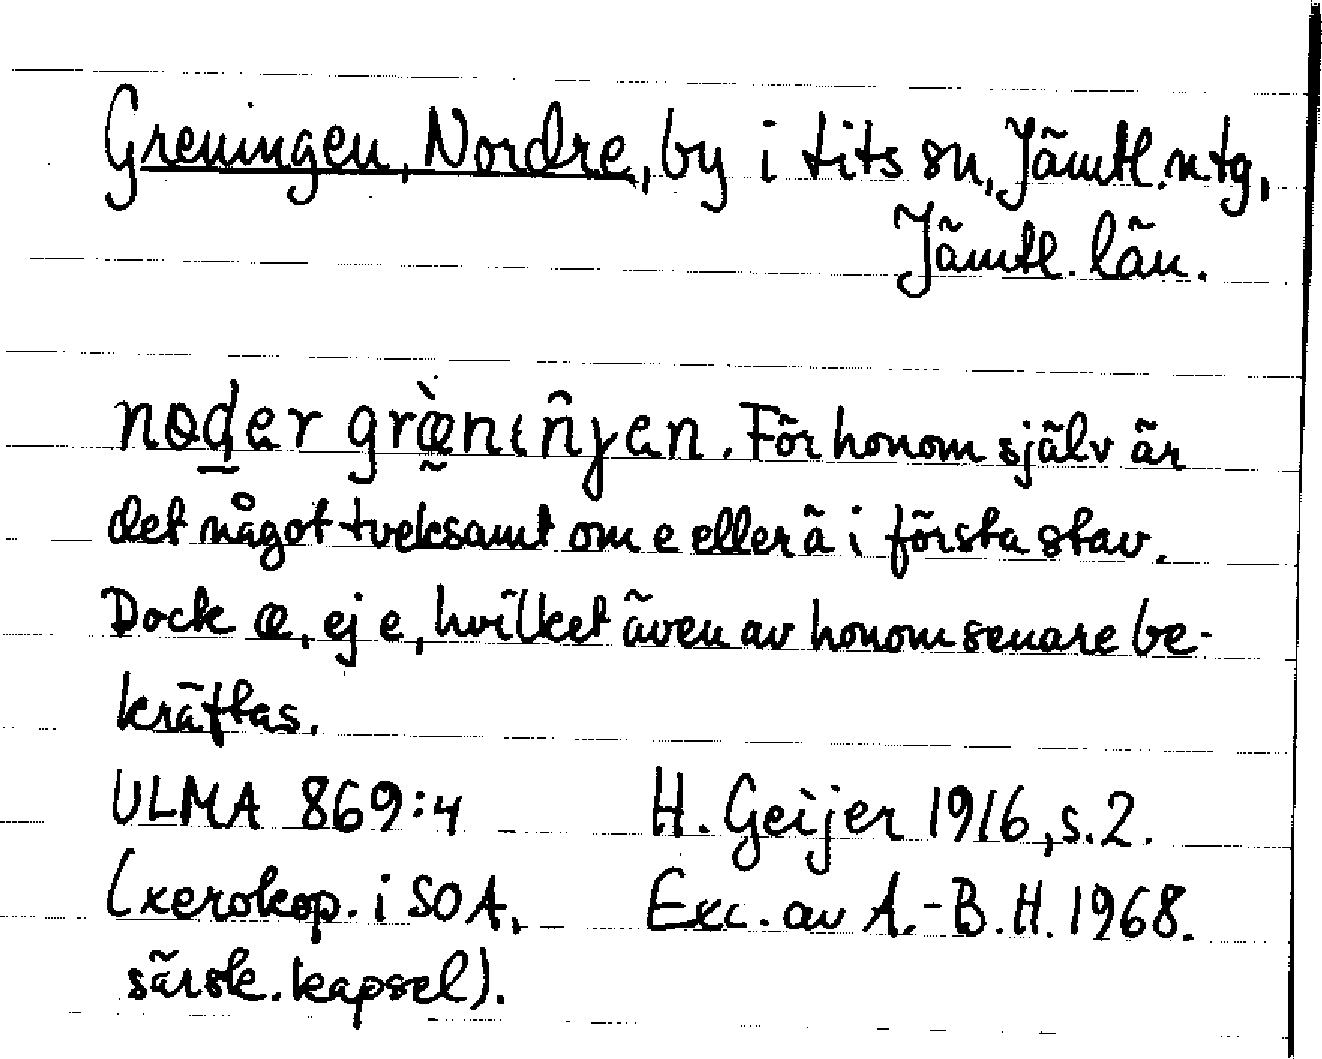 Greningen, Nordre, by i Lits sn, Jämtl. ntg,
Jämtl. län.
nøder græ̀niŋ̂en. För honom själv är
det något tveksamt om e eller ä i första stav.
Dock æ, ej e, hvilket även av honom senare be-
kräftas.
ULMA 869:4 H. Geijer 1916, s. 2.
(xerokop. i SOA, Exc. av A.-B. H. 1968.
särsk. kapsel).